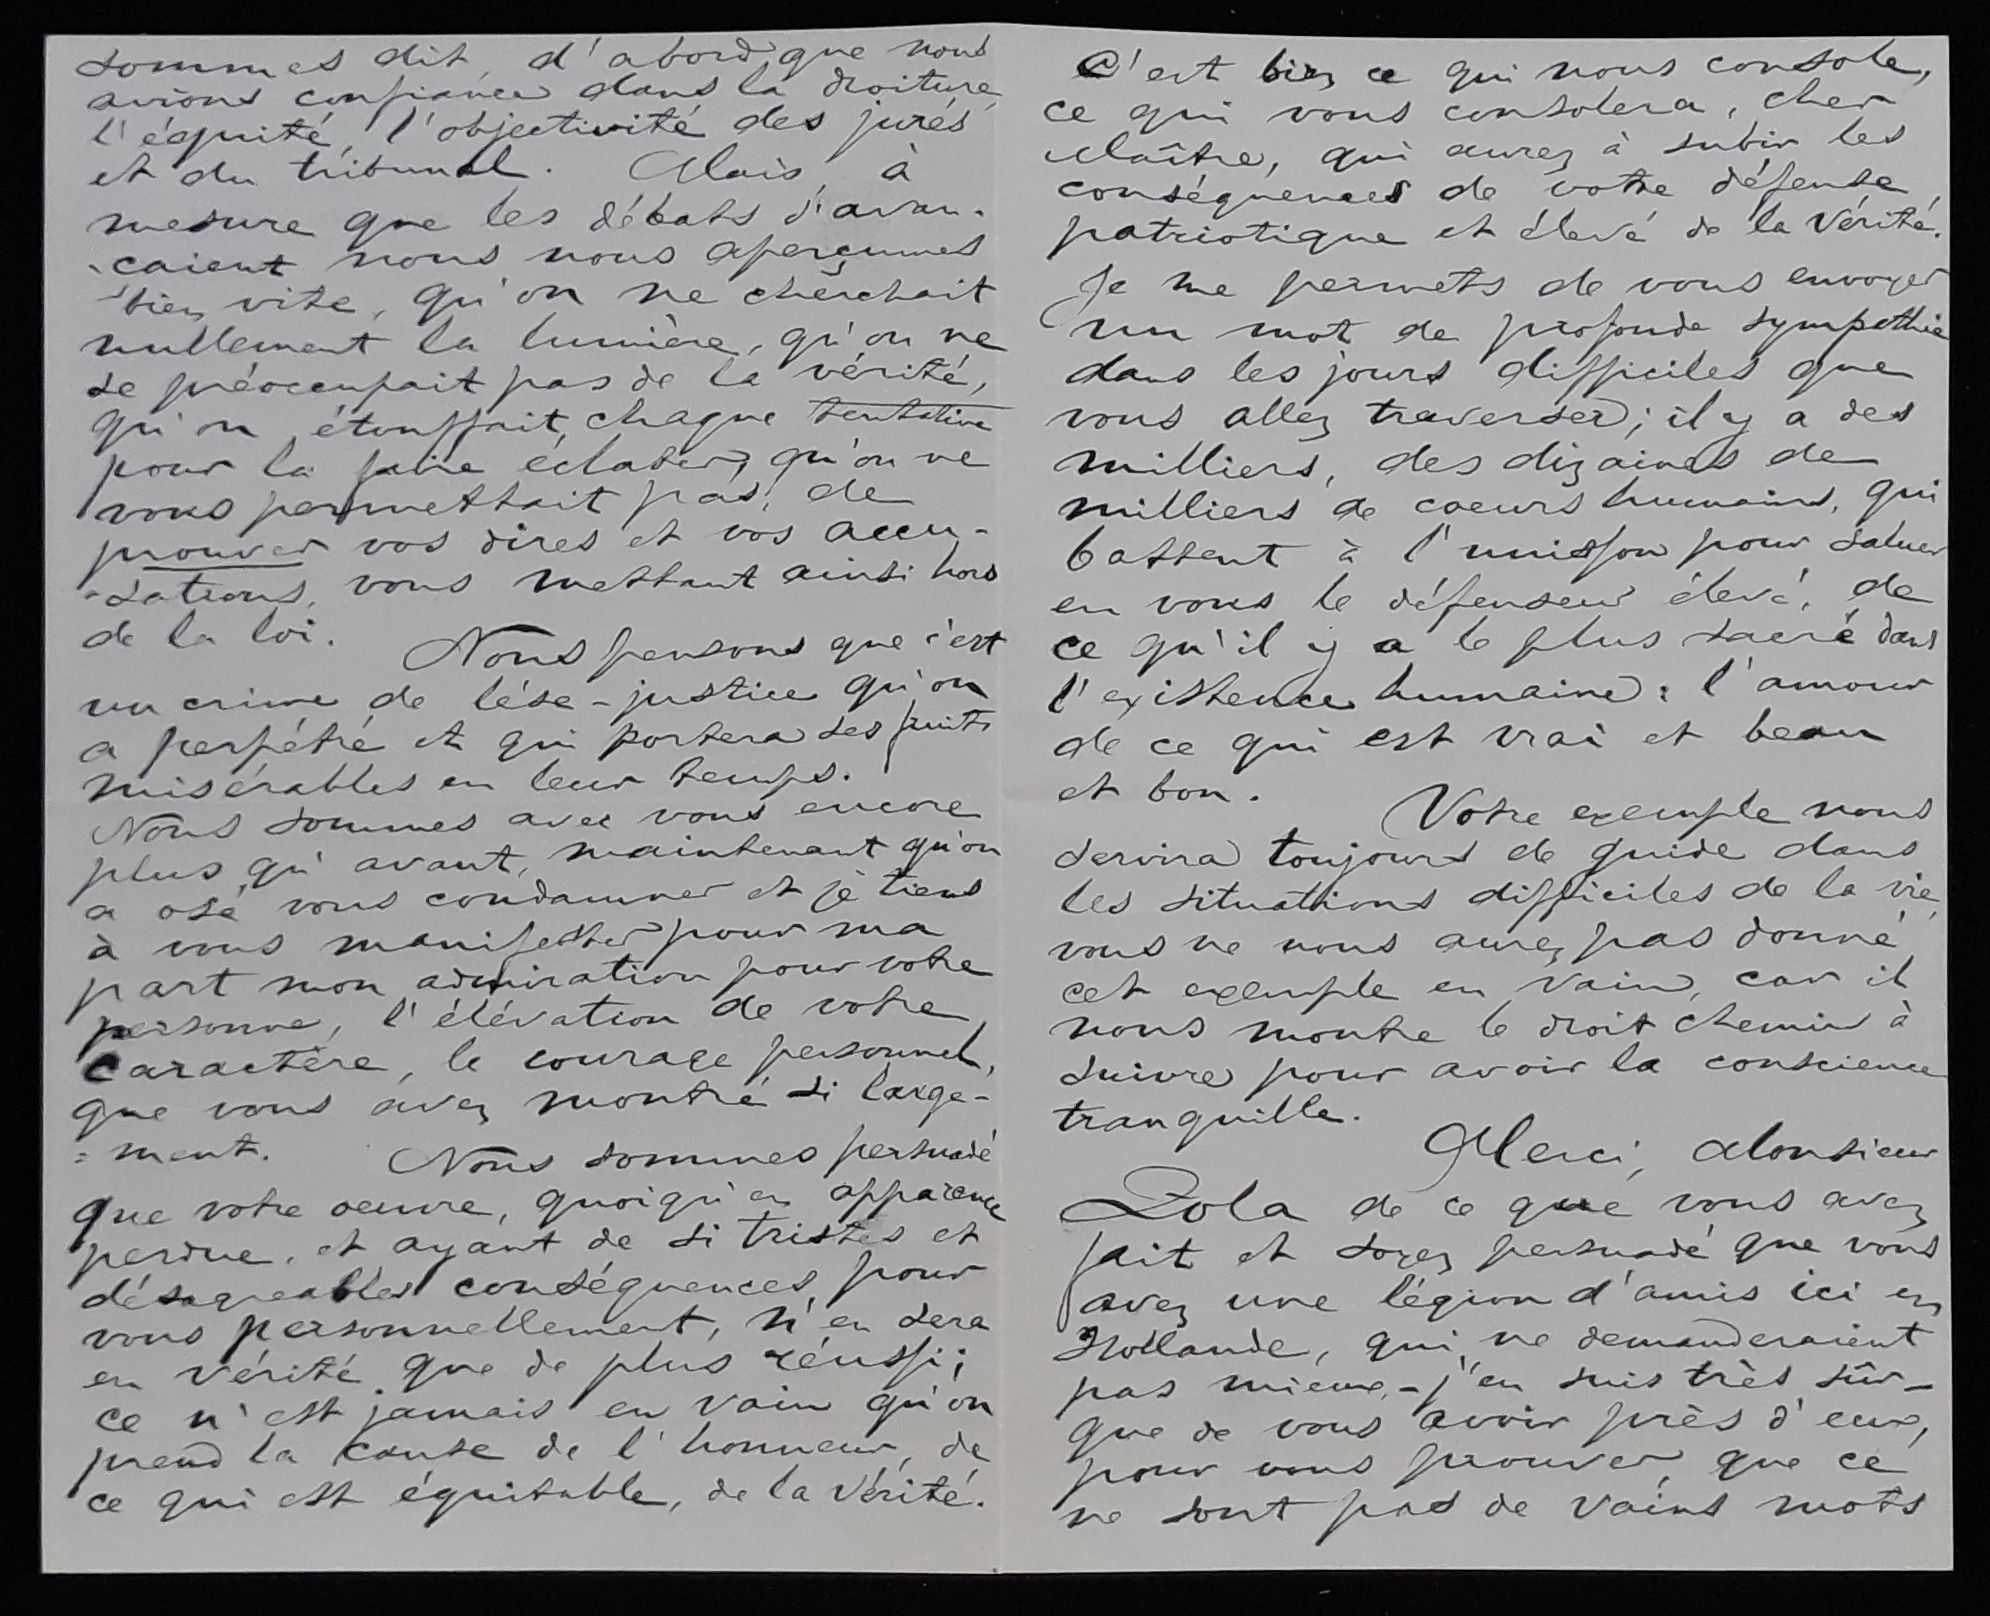 sommes dit, d'abord que nous
avions confiance dans la droiture,
l'équité, l'objectivité des jurés
et du tribunal. Mais, à
mesure que les débats s'avan-
-caient nous nous aperçumes
bien vite, qu'on ne cherchait
nullement la lumière, qu'on ne
se préoccupait pas de la vérité,
qu'on étouffait chaque tentative
pour la faire éclater, qu'on ne
vous permettait pas, de
prouver vos dires et vos accu-
-sations, vous mettant ainsi hors
de la loi. Nous pensons que c'est
un crime de lése-justice qu'on
a perpétré et qui portera ses fruits
misérables en leur temps.
Nous sommes avec vous encore
plus qu'avant, maintenant qu'on
a osé vous condamner et je tiens
à vous manifester pour ma
part mon admiration pour votre
personne, l'élévation de votre
caractère, le courage personnel,
que vous avez montré si large-
=ment. Nous sommes persuadé
que votre oeuvre, quoiqu'en apparence
perdue, et ayant de si tristes et
désagreables conséquences pour
vous personnellement, n'en sera
en vérité que de plus réussi;
ce n'est jamais en vain qu'on
prend la cause de l'honneur, de
ce qui est équitable, de la Vérité.
C'est bien ce qui nous console,
ce qui vous consolera, cher
Maître, qui aurez à subir les
conséquences de votre défense
patriotique et élevé de la Vérité.
Je me permets de vous envoyer
un mot de profonde sympathie
dans les jours difficiles que
vous allez traverser; il y a des
milliers, des dizaines de
milliers de coeurs humains, qui
battent à l'unisson pour saluer
en vous le défenseur élevé, de
ce qu'il y a le plus sacré dans
l'existence humaine: l'amour
de ce qui est vrai et beau
et bon. Votre exemple nous
servira toujours de guide dans
les situations difficiles de la vie,
vous ne nous aurez pas donné
cet exemple en vain, car il
nous montre le droit chemin à
suivre pour avoir la conscience
tranquille. Merci, Monsieur
Zola de ce que vous avez
fait et soyez persuadé que vous
avez une légion d'amis ici en
Hollande, qui ne demanderaient
pas mieux, - j'en suis très sûr -
que de vous avoir près d'eux,
pour vous prouver, que ce
ne sont pas de vains mots